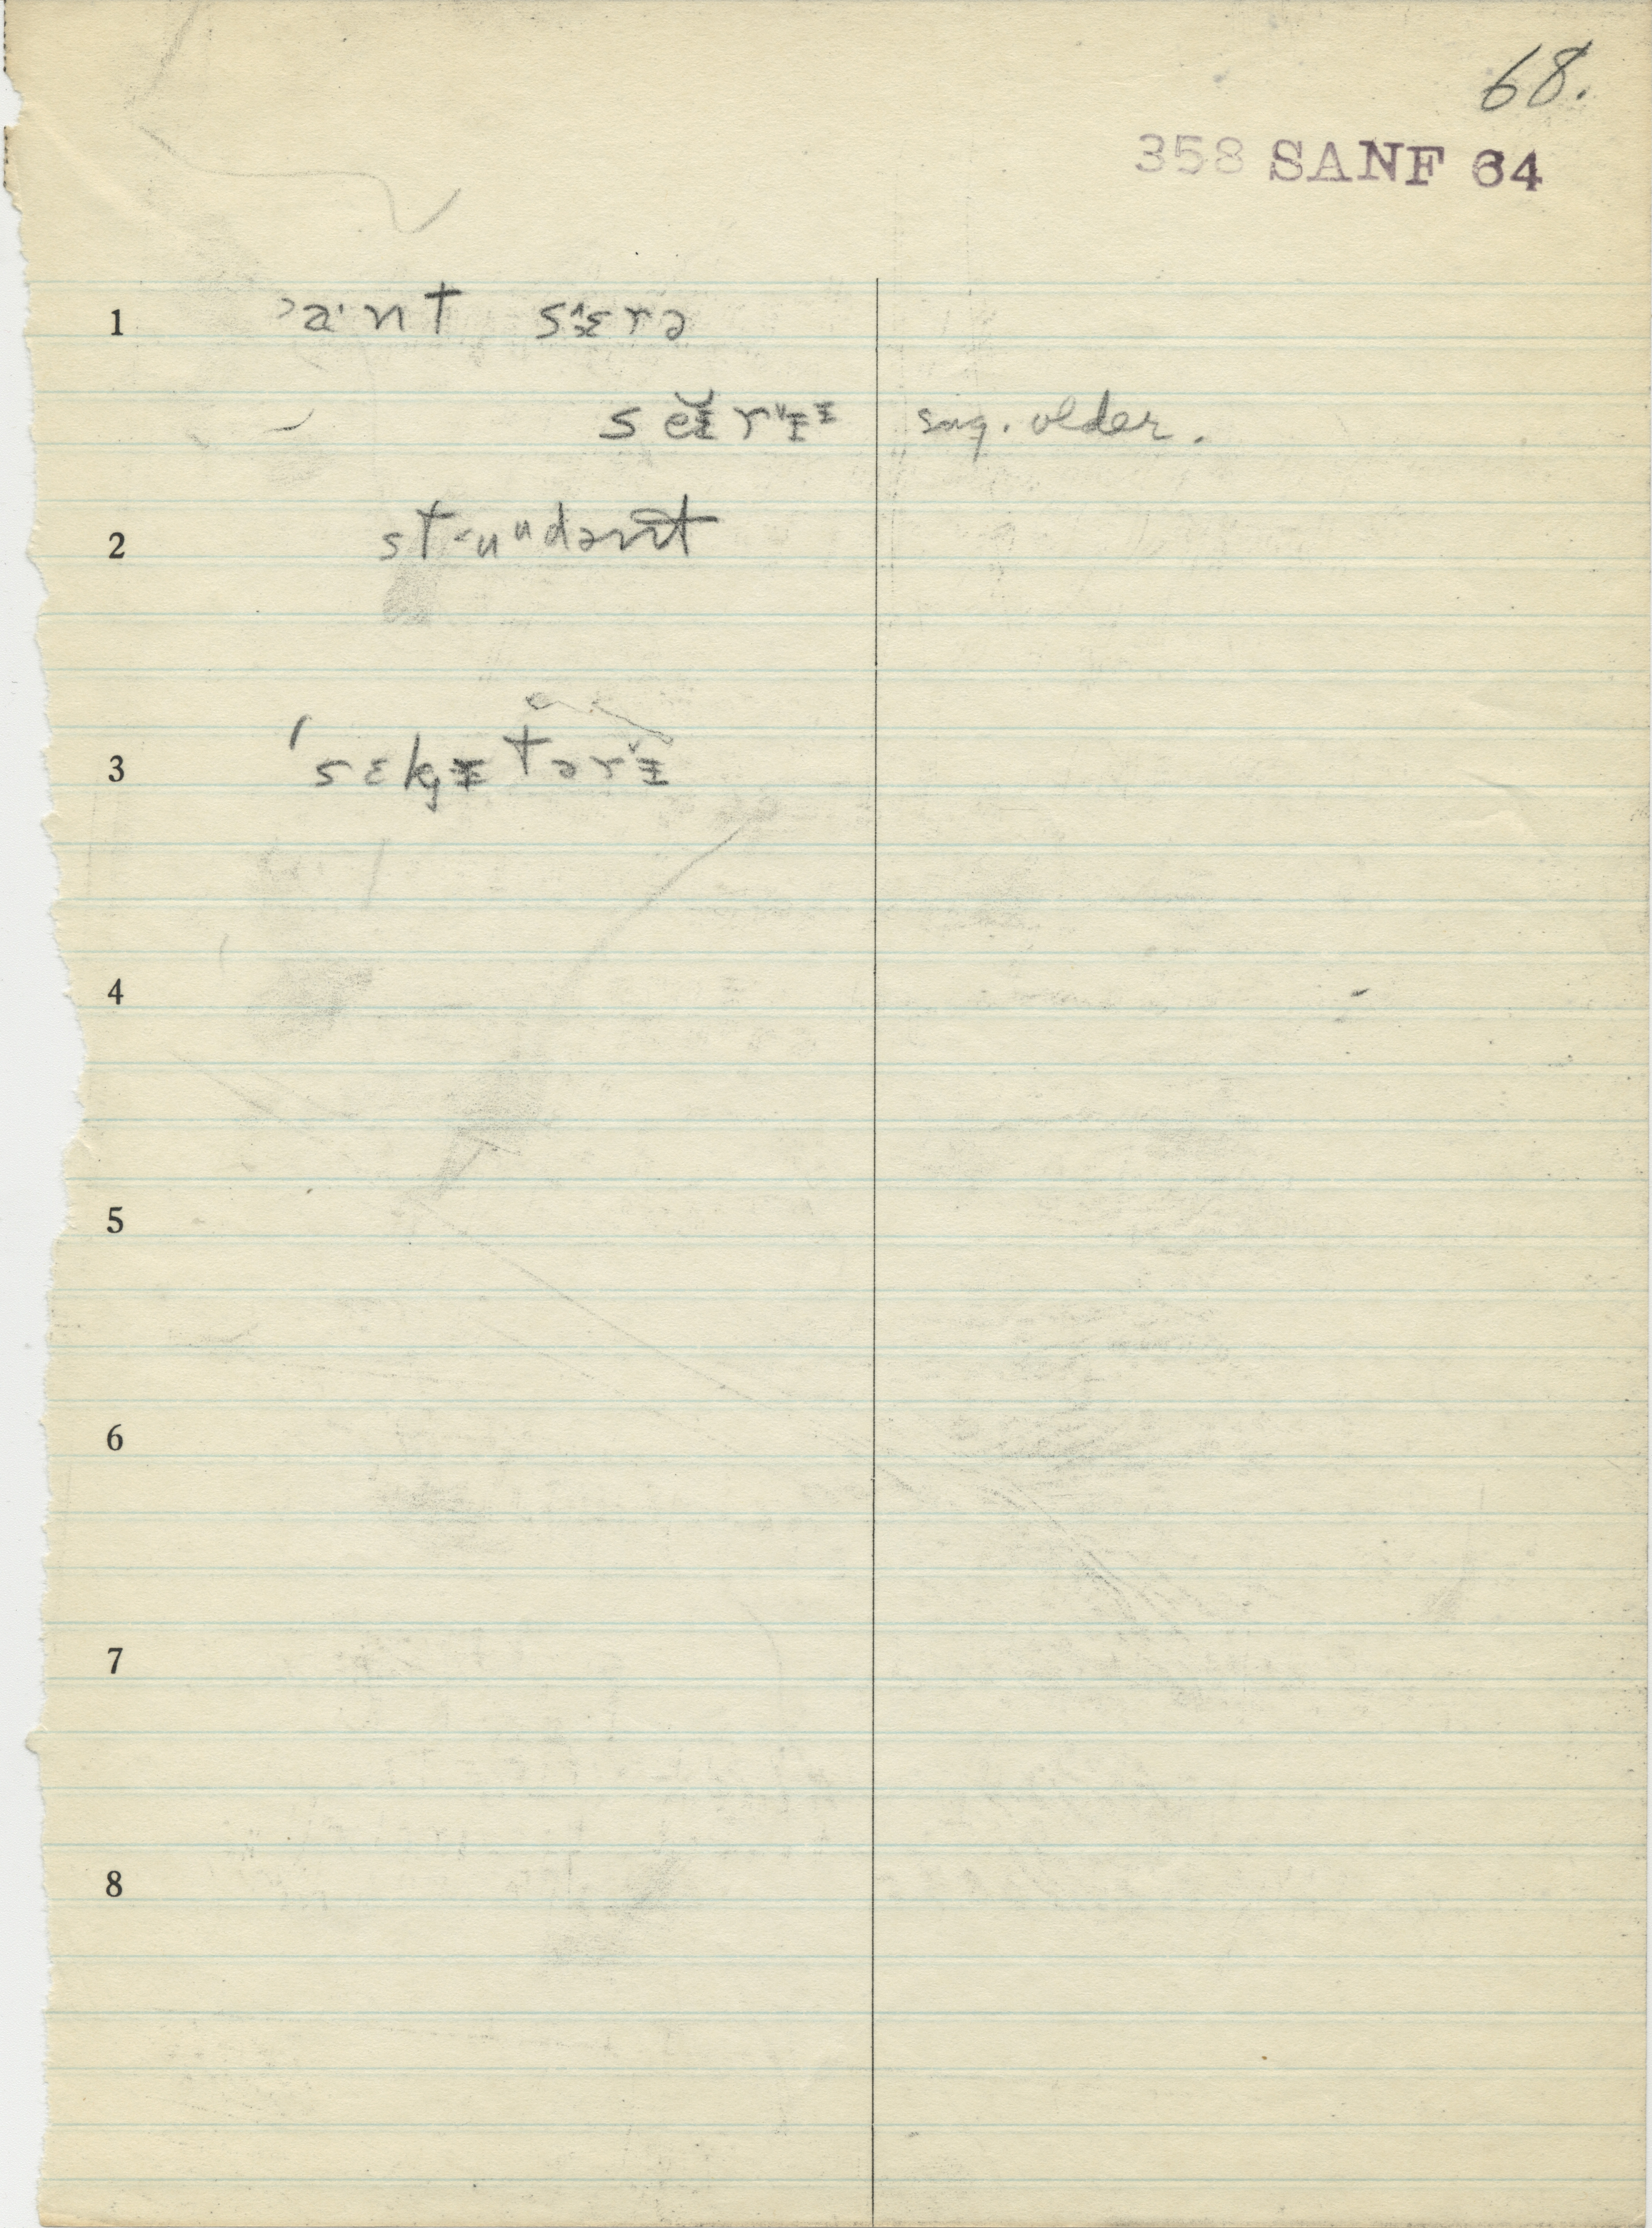 68.
358 SANF 64
1 ˃a·nt sæ̂rə
seɪ̆rɪ̌ɪ sug. older.
2 st˂uᵘdənt
3 'sɛkɪtərɪ̌
4
5
6
7
8